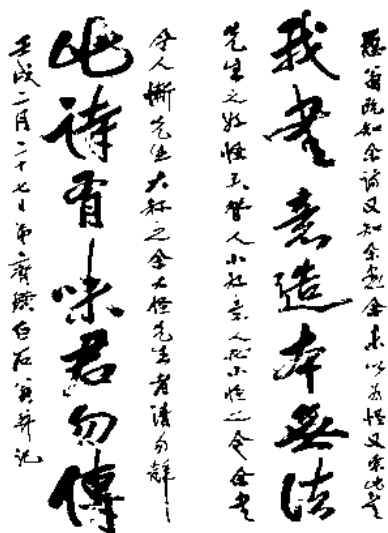 翁既知余詩又知余畫余未以為怪又索此書
我書意造本無法
先生之好怪矣人小好意人必小怪之令余書
令人慚先生大好之余大怪先生者請勿辭
此詩有味君勿傳
壬戌二月二十七日弟齊璜白石翁并記